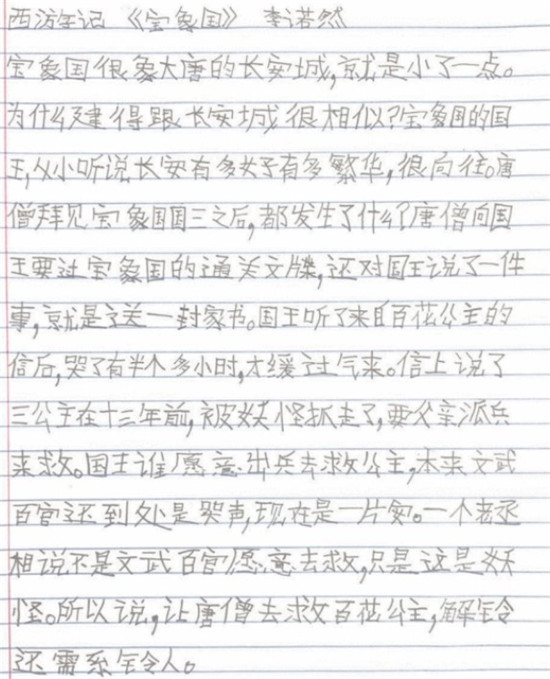 西游年记 《宝象国》 李诺然
宝象国很象大唐的长安城,就是小了一点。
为什么建得跟长安城很相似?宝象国的国
王,从小听说长安有多好有多繁华,很向往。唐
僧拜见宝象国国三之后,都发生了什么?唐僧向国
王要过宝象国的通关文牒,还对国王说了一件
事,就是送一封家书。国王听了来自百花公主的
信后,哭了有半个多小时,才缓过气来。信上说了
三公主在十三年前,被妖怪抓走了,要父亲派兵
来救。国王谁愿意出兵去救公主,本来文武
百官还到处是哭声,现在是一片安。一个老丞
相说不是文武百官愿意去救,只是这是妖
怪。所以说,让唐僧去求救百花公主,解铃
还需系铃人。